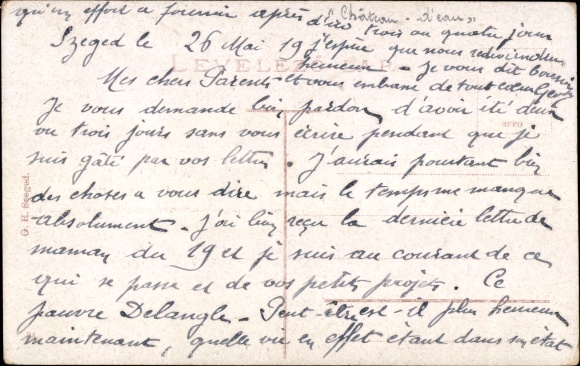 qu'un effort a fournir après "Château-d'eau"
d'ici trois ou quatre jours
Szeged le 26 Mai 19 j'espère que nous
heureux - Je vous dit bonsoir
LEVELEZŐLAP
Mes chers Parents et vous embrasse de tout cœur
Je vous demande bien pardon d'avoir été deux
ou trois jours sans vous écrire pendant que je
suis gâté par vos lettres. J'aurais pourtant bien
des choses a vous dire mais le temps me manque
absolument. J'ai bien reçu la dernière lettre de
maman du 19 et je suis au courant de ce
qui se passe et de vos petits projets. Ce
pauvre Delangle - Peut-être est-il plus heureux
maintenant, quelle vie en effet étant dans son état
G. H. Szeged.